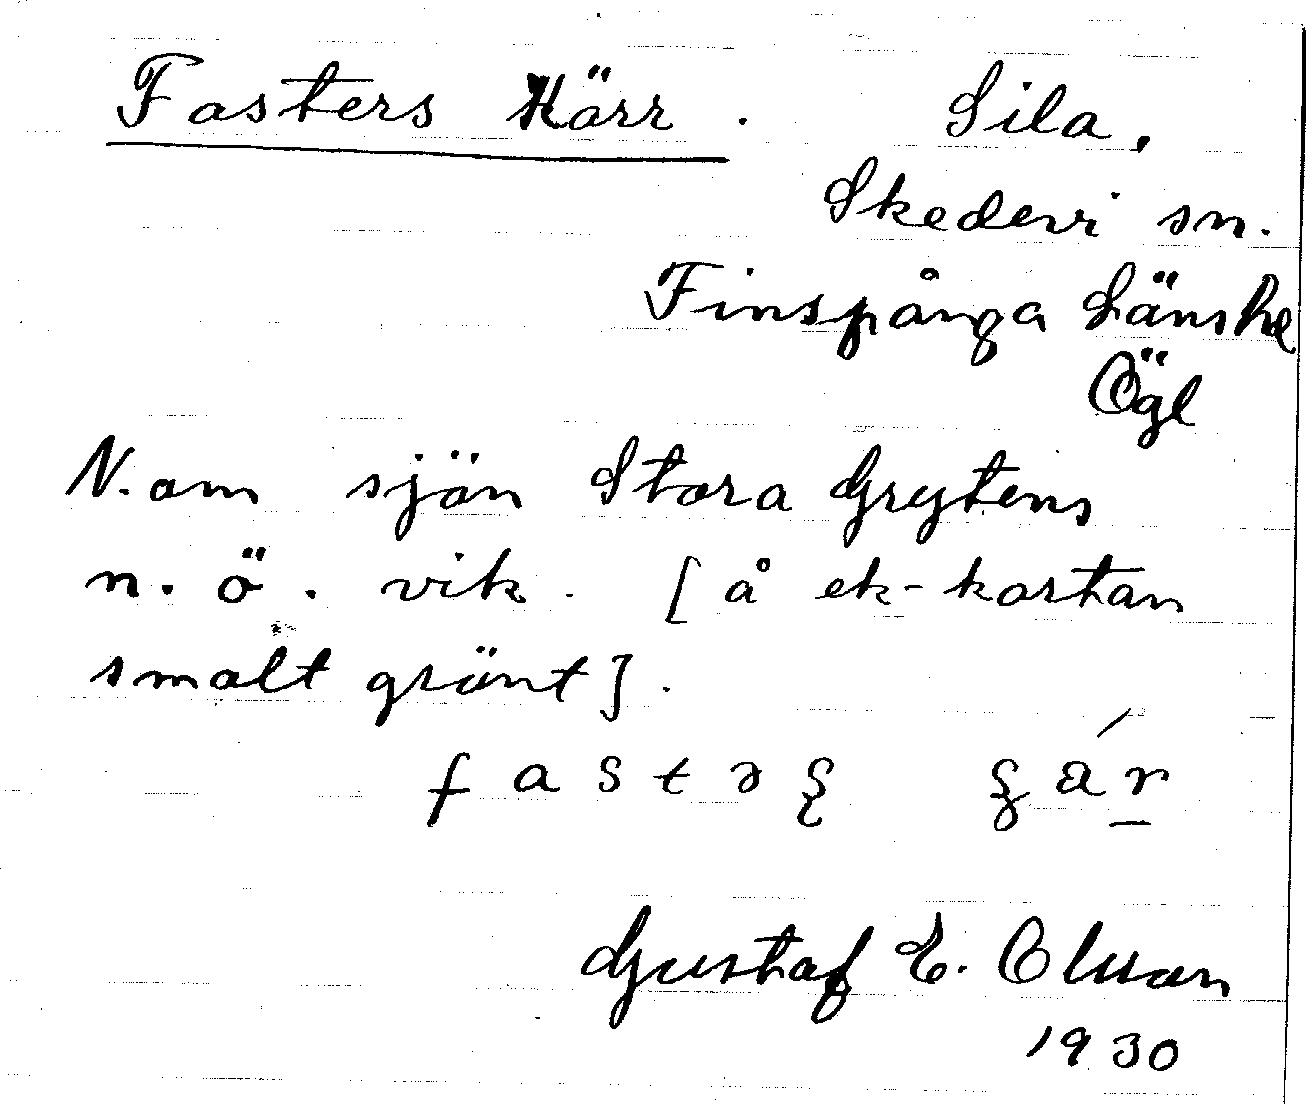 Fasters Kärr. Sila,
Skedevi sn.
Finspånga Länshd
Ögl
N. om sjön Stora Grytens
n. ö. vik. [å ek-kartan
smalt grönt].
Gustaf E. Olsson
1930